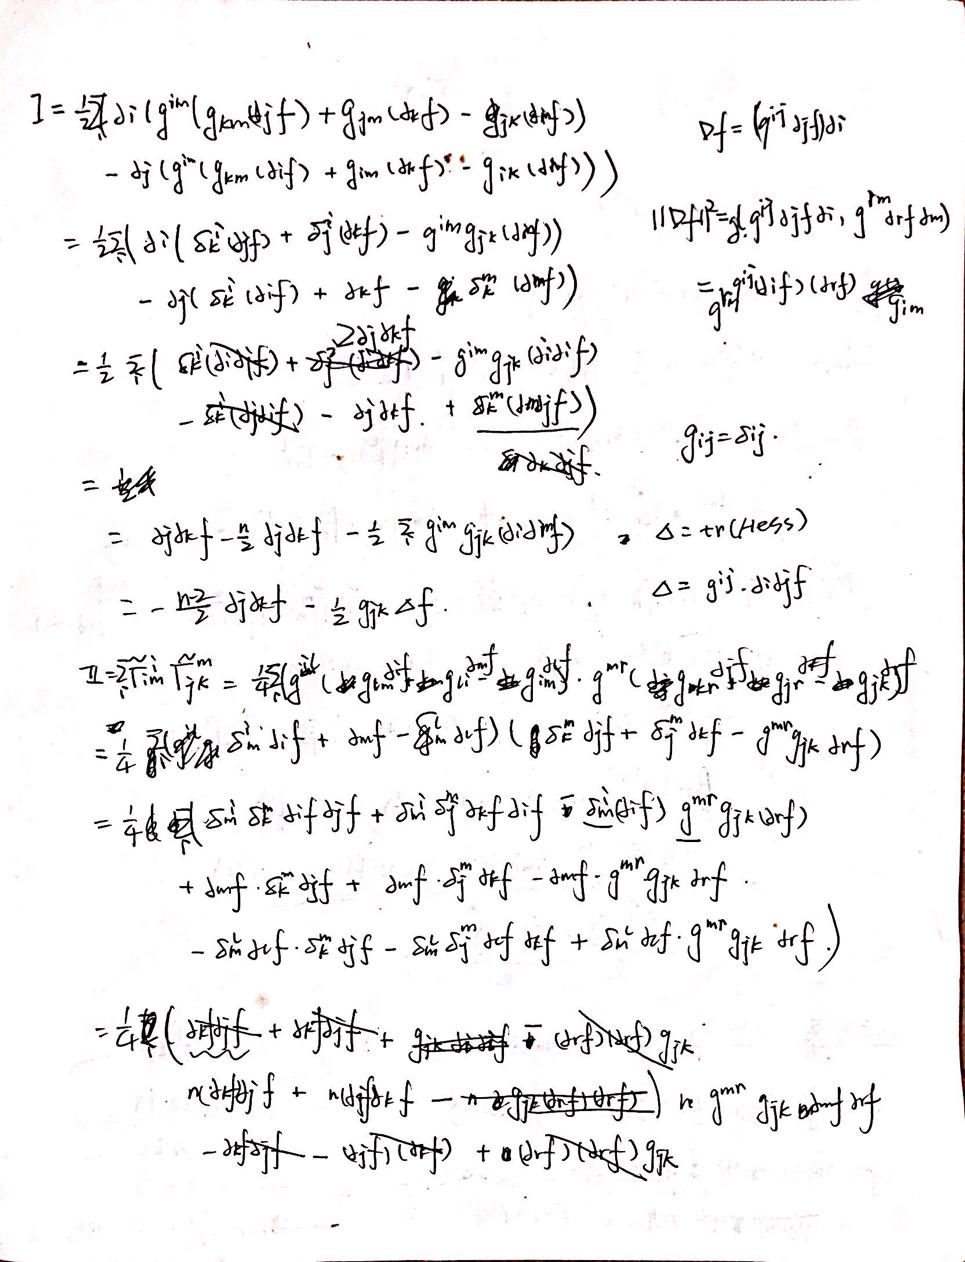 I = ½ Σᵢ ( ∂i (g^{im} (g_{km} (∂jf) + g_{jm} (∂kf) - g_{jk} (∂mf))
- ∂j (g^{im} (g_{km} (∂if) + g_{im} (∂kf) - g_{ik} (∂mf)))
= ½ Σᵢ ( ∂i ( δ_k^i (∂jf) + δ_j^i (∂kf) - g^{im} g_{jk} (∂mf))
- ∂j ( δ_k^i (∂if) + ∂kf - δ_k^m (∂mf))
2∂j∂kf
= ½ Σᵢ ( δ_k^i (∂i∂jf) + - g^{im} g_{jk} (∂i∂if)
- δ_k^i (∂j∂if) - ∂j∂kf. + δ_k^m (∂m∂jf))
∂k∂jf.
=
= ∂j∂kf - n/2 ∂j∂kf - ½ Σᵢ g^{im} g_{jk} (∂i∂mf)
= - (n-2)/2 ∂j∂kf - ½ g_{jk} Δf.
Df = (g^{ij} ∂jf)∂i
||Df||² = g( g^{ij} ∂jf ∂i, g^{rm} ∂rf ∂m)
= g^{rm} g^{ij} (∂if) (∂rf) g_{im}
g_{ij} = δ_{ij}.
Δ = tr(Hess)
Δ = g^{ij}. ∂i∂jf
II = Σᵢ Γ̃_{im}^i Γ̃_{jk}^m = ¼ Σᵢ (g^{il} ( g_{lm} ∂if + g_{li} ∂mf - g_{im} ∂lf) · g^{mr} ( g_{kr} ∂jf + g_{jr} ∂kf - g_{jk} ∂rf)
= ¼ Σᵢ ( δ_m^i ∂if + ∂mf - δ_m^l ∂lf) ( δ_k^m ∂jf + δ_j^m ∂kf - g^{mr} g_{jk} ∂rf)
= ¼ Σᵢ ( δ_m^i δ_k^m ∂if ∂jf + δ_m^i δ_j^m ∂kf ∂if - δ_m^i (∂if) g^{mr} g_{jk} (∂rf)
+ ∂mf · δ_k^m ∂jf + ∂mf · δ_j^m ∂kf - ∂mf · g^{mr} g_{jk} ∂rf .
- δ_m^l ∂lf · δ_k^m ∂jf - δ_m^l δ_j^m ∂lf ∂kf + δ_m^l ∂lf · g^{mr} g_{jk} ∂rf .)
= ¼ ( ∂kf∂jf + ∂kf∂jf + - (∂rf) (∂rf) g_{jk}
n(∂kf)∂jf + n(∂jf)∂kf - n g_{jk} (∂rf) (∂rf) ) n g^{mr} g_{jk} ∂mf ∂rf
- ∂kf∂jf - (∂jf) (∂kf) + (∂rf) (∂rf) g_{jk}